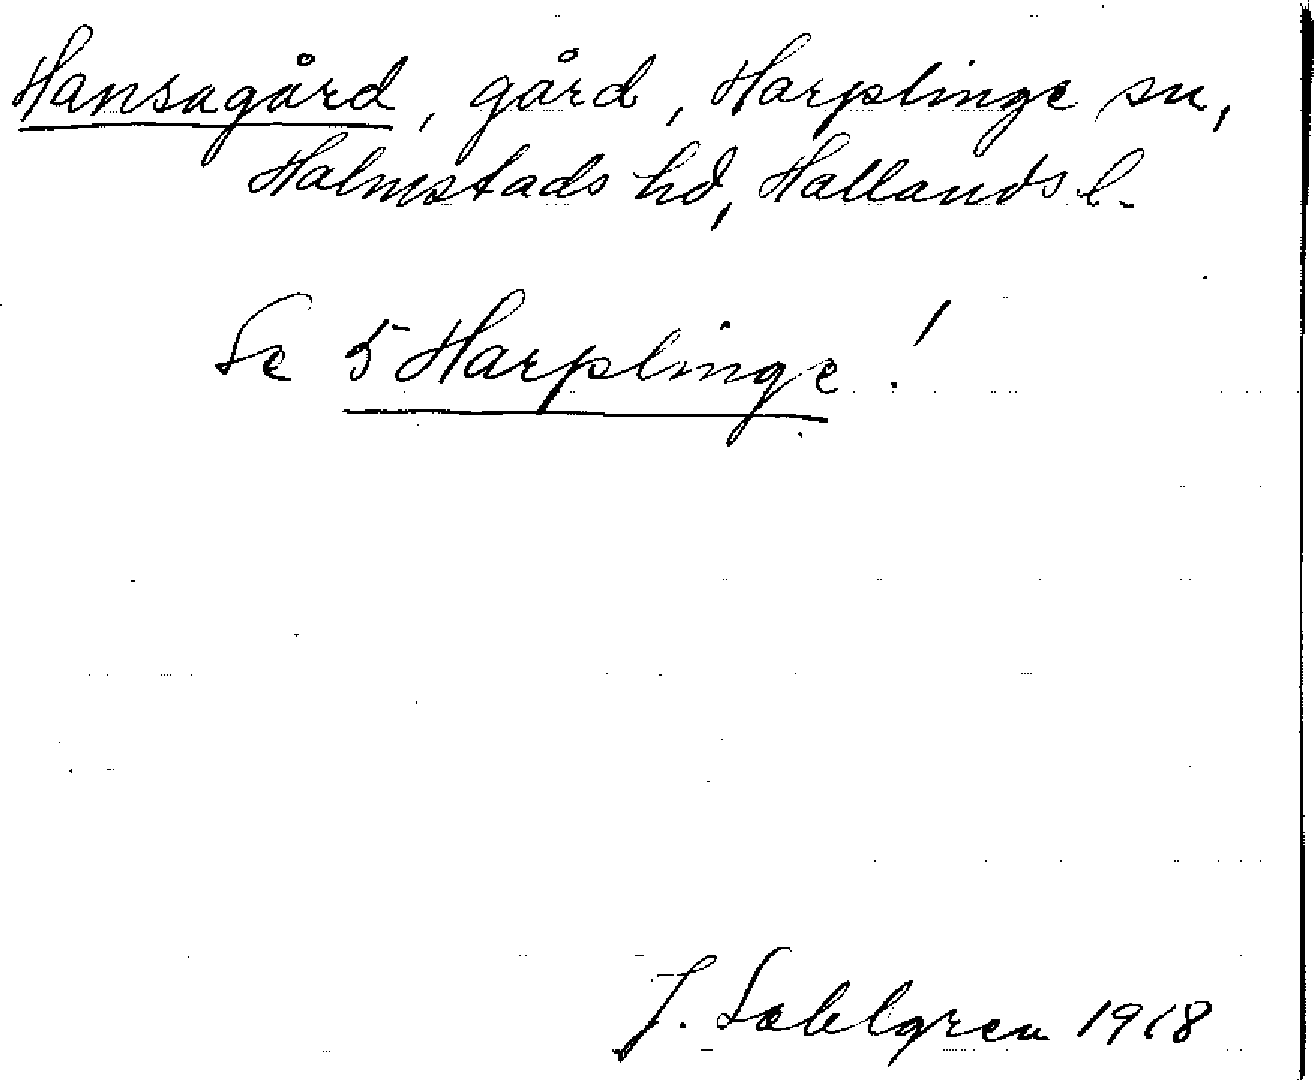 Hansagård, gård, Harplinge sn,
Halmstads hd, Hallands l.
Se 5 Harplinge!
J. Sahlgren 1918